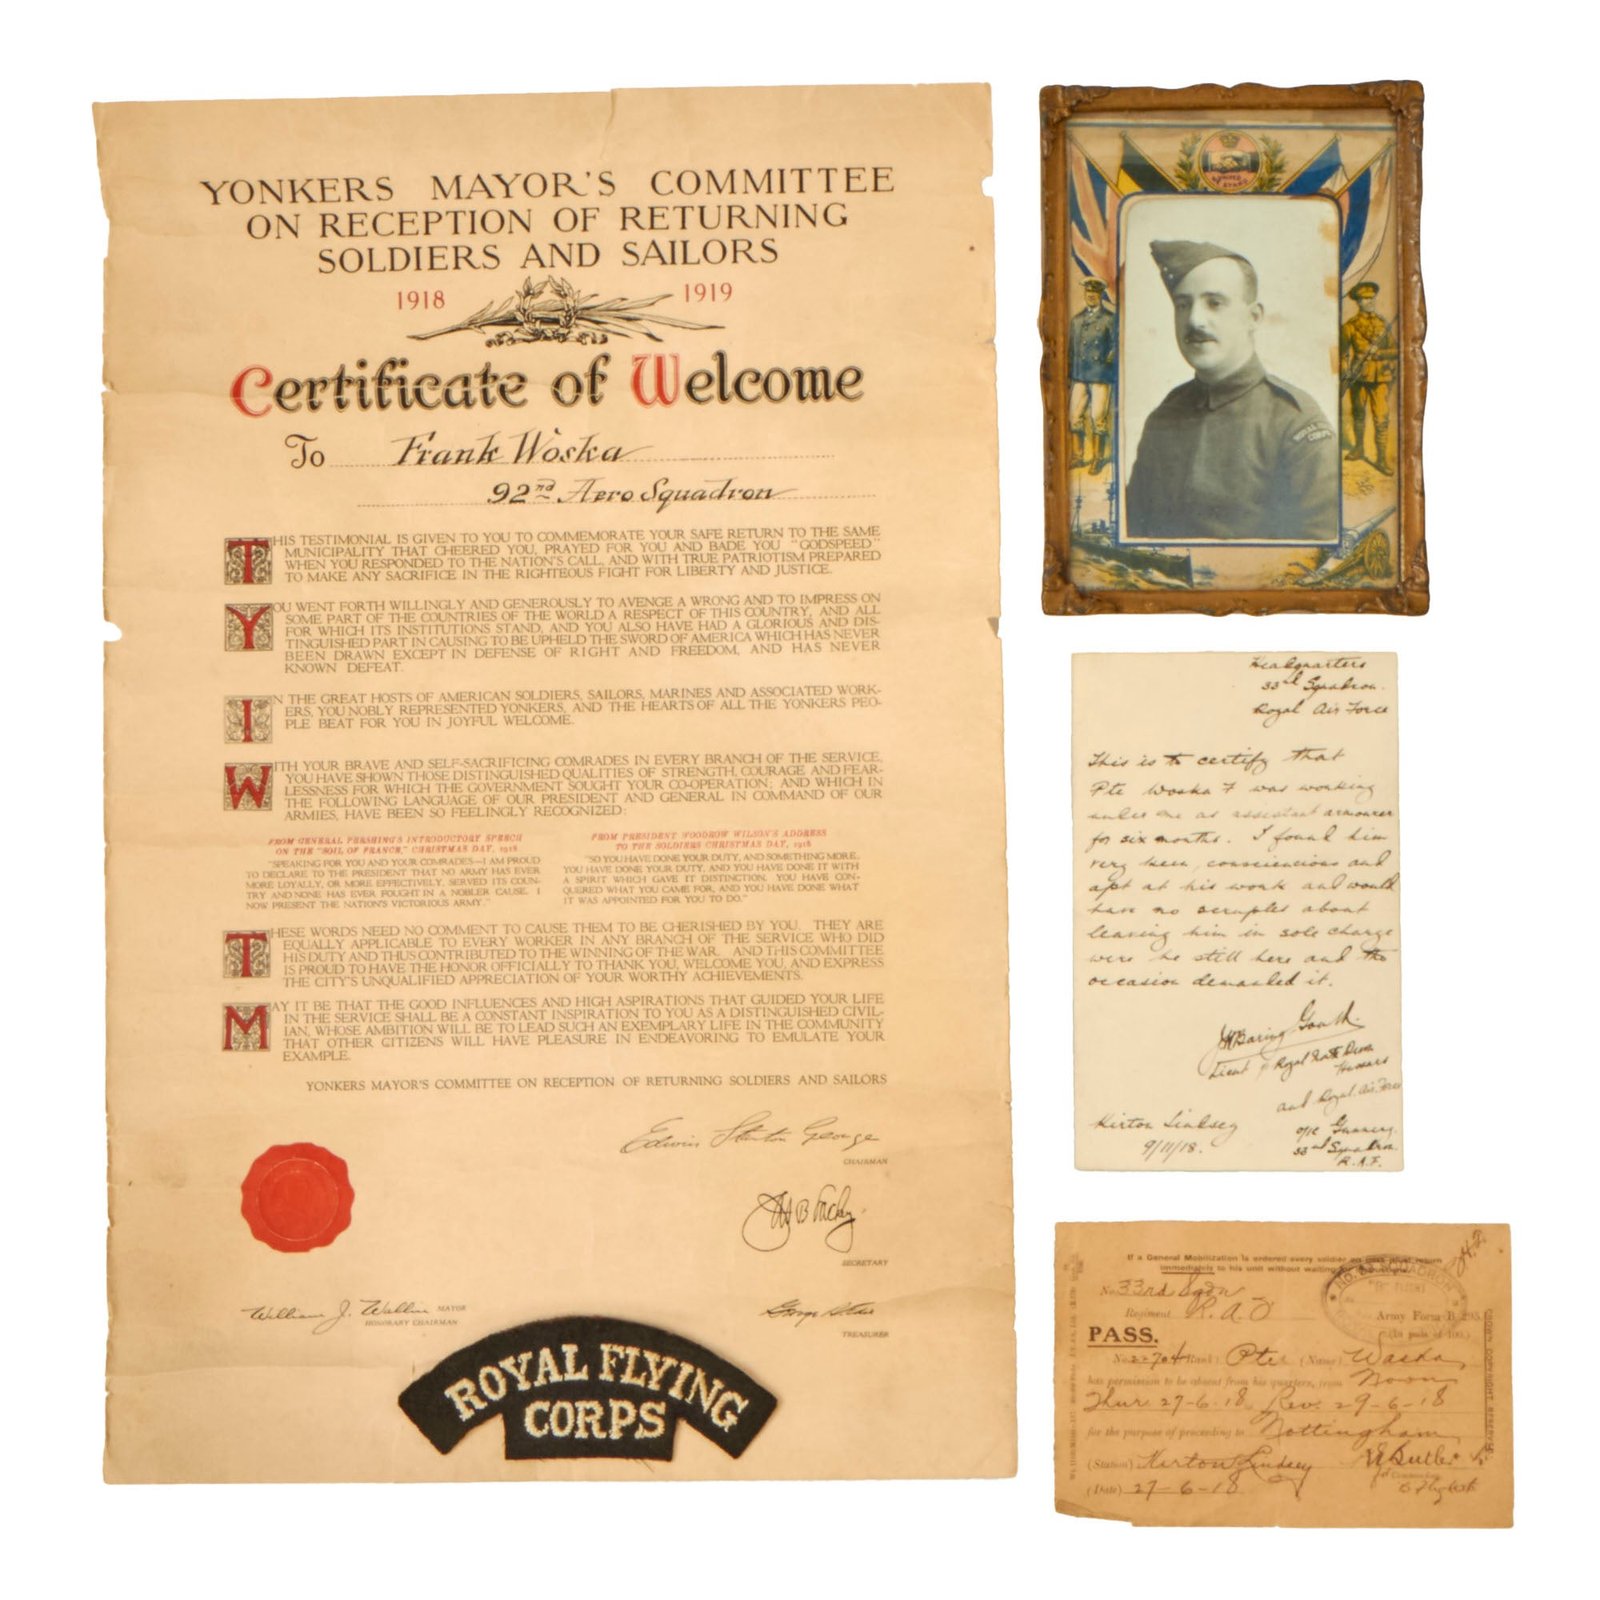 YONKERS MAYOR'S COMMITTEE
ON RECEPTION OF RETURNING
SOLDIERS AND SAILORS
1918 1919
Certificate of Welcome
To Frank Woska
92nd Aero Squadron
THIS TESTIMONIAL IS GIVEN TO YOU TO COMMEMORATE YOUR SAFE RETURN TO THE SAME
MUNICIPALITY THAT CHEERED YOU, PRAYED FOR YOU AND BADE YOU "GODSPEED"
WHEN YOU RESPONDED TO THE NATION'S CALL, AND WITH TRUE PATRIOTISM PREPARED
TO MAKE ANY SACRIFICE IN THE RIGHTEOUS FIGHT FOR LIBERTY AND JUSTICE.
YOU WENT FORTH WILLINGLY AND GENEROUSLY TO AVENGE A WRONG AND TO IMPRESS ON
SOME PART OF THE COUNTRIES OF THE WORLD A RESPECT OF THIS COUNTRY, AND ALL
FOR WHICH ITS INSTITUTIONS STAND, AND YOU ALSO HAVE HAD A GLORIOUS AND DIS-
TINGUISHED PART IN CAUSING TO BE UPHELD THE SWORD OF AMERICA WHICH HAS NEVER
BEEN DRAWN EXCEPT IN DEFENSE OF RIGHT AND FREEDOM, AND HAS NEVER
KNOWN DEFEAT.
IN THE GREAT HOSTS OF AMERICAN SOLDIERS, SAILORS, MARINES AND ASSOCIATED WORK-
ERS, YOU NOBLY REPRESENTED YONKERS, AND THE HEARTS OF ALL THE YONKERS PEO-
PLE BEAT FOR YOU IN JOYFUL WELCOME.
WITH YOUR BRAVE AND SELF-SACRIFICING COMRADES IN EVERY BRANCH OF THE SERVICE,
YOU HAVE SHOWN THOSE DISTINGUISHED QUALITIES OF STRENGTH, COURAGE AND FEAR-
LESSNESS FOR WHICH THE GOVERNMENT SOUGHT YOUR CO-OPERATION; AND WHICH IN
THE FOLLOWING LANGUAGE OF OUR PRESIDENT AND GENERAL IN COMMAND OF OUR
ARMIES, HAVE BEEN SO FEELINGLY RECOGNIZED:
FROM GENERAL PERSHING'S INTRODUCTORY SPEECH
ON THE "SOIL OF FRANCE," CHRISTMAS DAY, 1918
"SPEAKING FOR YOU AND YOUR COMRADES—I AM PROUD
TO DECLARE TO THE PRESIDENT THAT NO ARMY HAS EVER
MORE LOYALLY, OR MORE EFFECTIVELY, SERVED ITS COUN-
TRY AND NONE HAS EVER FOUGHT IN A NOBLER CAUSE. I
NOW PRESENT THE NATION'S VICTORIOUS ARMY."
FROM PRESIDENT WOODROW WILSON'S ADDRESS
TO THE SOLDIERS CHRISTMAS DAY, 1918
"SO YOU HAVE DONE YOUR DUTY, AND SOMETHING MORE.
YOU HAVE DONE YOUR DUTY, AND YOU HAVE DONE IT WITH
A SPIRIT WHICH GAVE IT DISTINCTION. YOU HAVE CON-
QUERED WHAT YOU CAME FOR, AND YOU HAVE DONE WHAT
IT WAS APPOINTED FOR YOU TO DO."
THESE WORDS NEED NO COMMENT TO CAUSE THEM TO BE CHERISHED BY YOU. THEY ARE
EQUALLY APPLICABLE TO EVERY WORKER IN ANY BRANCH OF THE SERVICE WHO DID
HIS DUTY AND THUS CONTRIBUTED TO THE WINNING OF THE WAR. AND THIS COMMITTEE
IS PROUD TO HAVE THE HONOR OFFICIALLY TO THANK YOU, WELCOME YOU, AND EXPRESS
THE CITY'S UNQUALIFIED APPRECIATION OF YOUR WORTHY ACHIEVEMENTS.
MAY IT BE THAT THE GOOD INFLUENCES AND HIGH ASPIRATIONS THAT GUIDED YOUR LIFE
IN THE SERVICE SHALL BE A CONSTANT INSPIRATION TO YOU AS A DISTINGUISHED CIVIL-
IAN, WHOSE AMBITION WILL BE TO LEAD SUCH AN EXEMPLARY LIFE IN THE COMMUNITY
THAT OTHER CITIZENS WILL HAVE PLEASURE IN ENDEAVORING TO EMULATE YOUR
EXAMPLE.
YONKERS MAYOR'S COMMITTEE ON RECEPTION OF RETURNING SOLDIERS AND SAILORS
Edwin Stanton George
CHAIRMAN
SECRETARY
William J. Wallin MAYOR
HONORARY CHAIRMAN
George
TREASURER
ROYAL FLYING
CORPS
ROYAL
CORPS
Headquarters
33rd Squadron.
Royal Air Force
This is to certify that
Pte Woska F was working
under me as assistant armourer
for six months. I found him
very keen, consciencious and
apt at his work and would
have no scruples about
leaving him in sole charge
were he still here and the
occasion demanded it.
Baring Gould.
Lieut Royal North Devon
Hussars
and Royal Air Force
Kirton Lindsey
9/11/18.
o/c Gunnery
33rd Squadron
R.A.F.
If a General Mobilization is ordered every soldier on pass must return
immediately to his unit without waiting for
No. 33rd Sqdn
Regiment R.A.
Army Form B. 295.
(In pads of 100.)
PASS.
No. Rank) Pte (Name) Waska
has permission to be absent from his quarters, from Noon
Thur 27-6-18 Rev. 29-6-18
for the purpose of proceeding to Nottingham
(Station) Kirton Lindsey Butler
(Date) 27-6-18
Commanding